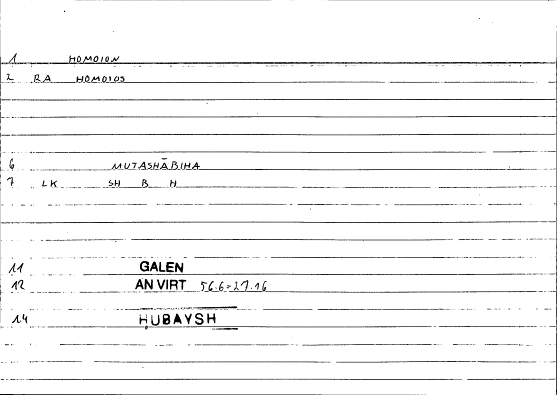 1 HOMOION
2 RA HOMOIOS
6 MUTASHĀBIHA
7 LK SH B H
11 GALEN
12 AN VIRT 56.6=27.16
14 ḤUBAYSH